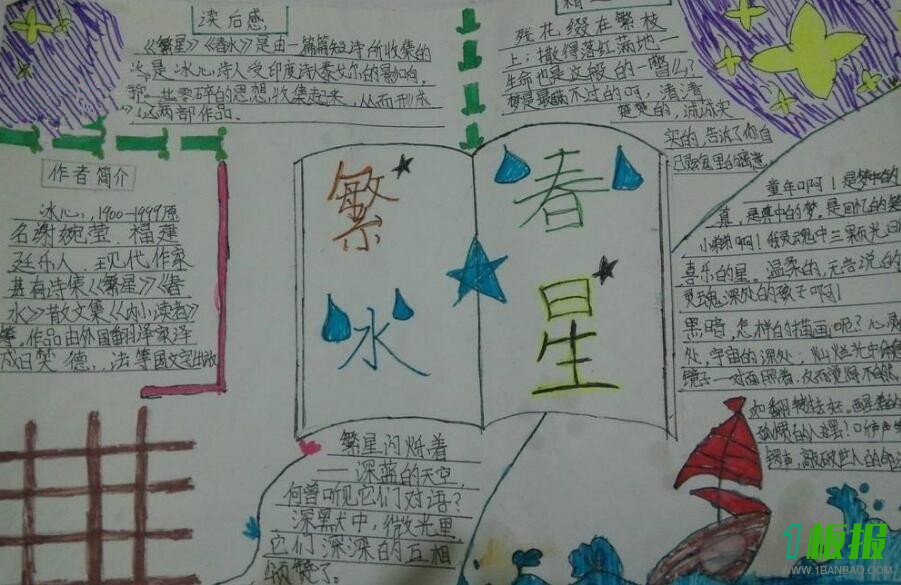 读后感
《繁星》《春水》是由一篇篇短诗所收集的
是冰心诗人受印度诗人泰戈尔的影响,
一些零碎的思想,收集起来,从而形成
这两部作品.
残花,缀在繁枝
上:撒得落红满地一
生命也是这般的一瞥么?
梦是最瞒不过的呵,清清
楚楚的,诚诚实
实的,告诉了你自
己
作者简介
冰心,1900-1999原
名谢婉莹.福建
长乐人.现代作家
其有诗集《繁星》《春
水》散文集《小读者》
等.作品由外国翻译家译
成日英德,.法等国文字出版
繁
春
水
星
童年啊!是梦中的
真,是真中的梦.是回忆的
小弟弟啊!我灵魂中三颗光明
喜乐的星.温柔的,无言说的
灵魂深处的孩子啊!
黑暗,怎样的描画呢?心灵
处,宇宙的深处:灿烂光中
镜子一对面照着,反而觉得不自然,
繁星闪烁着
——深蓝的天空
何曾听见它们对语?
深默中,微光里
它们深深的互相
颂赞了.
1板报
WWW.1BANBAO.COM